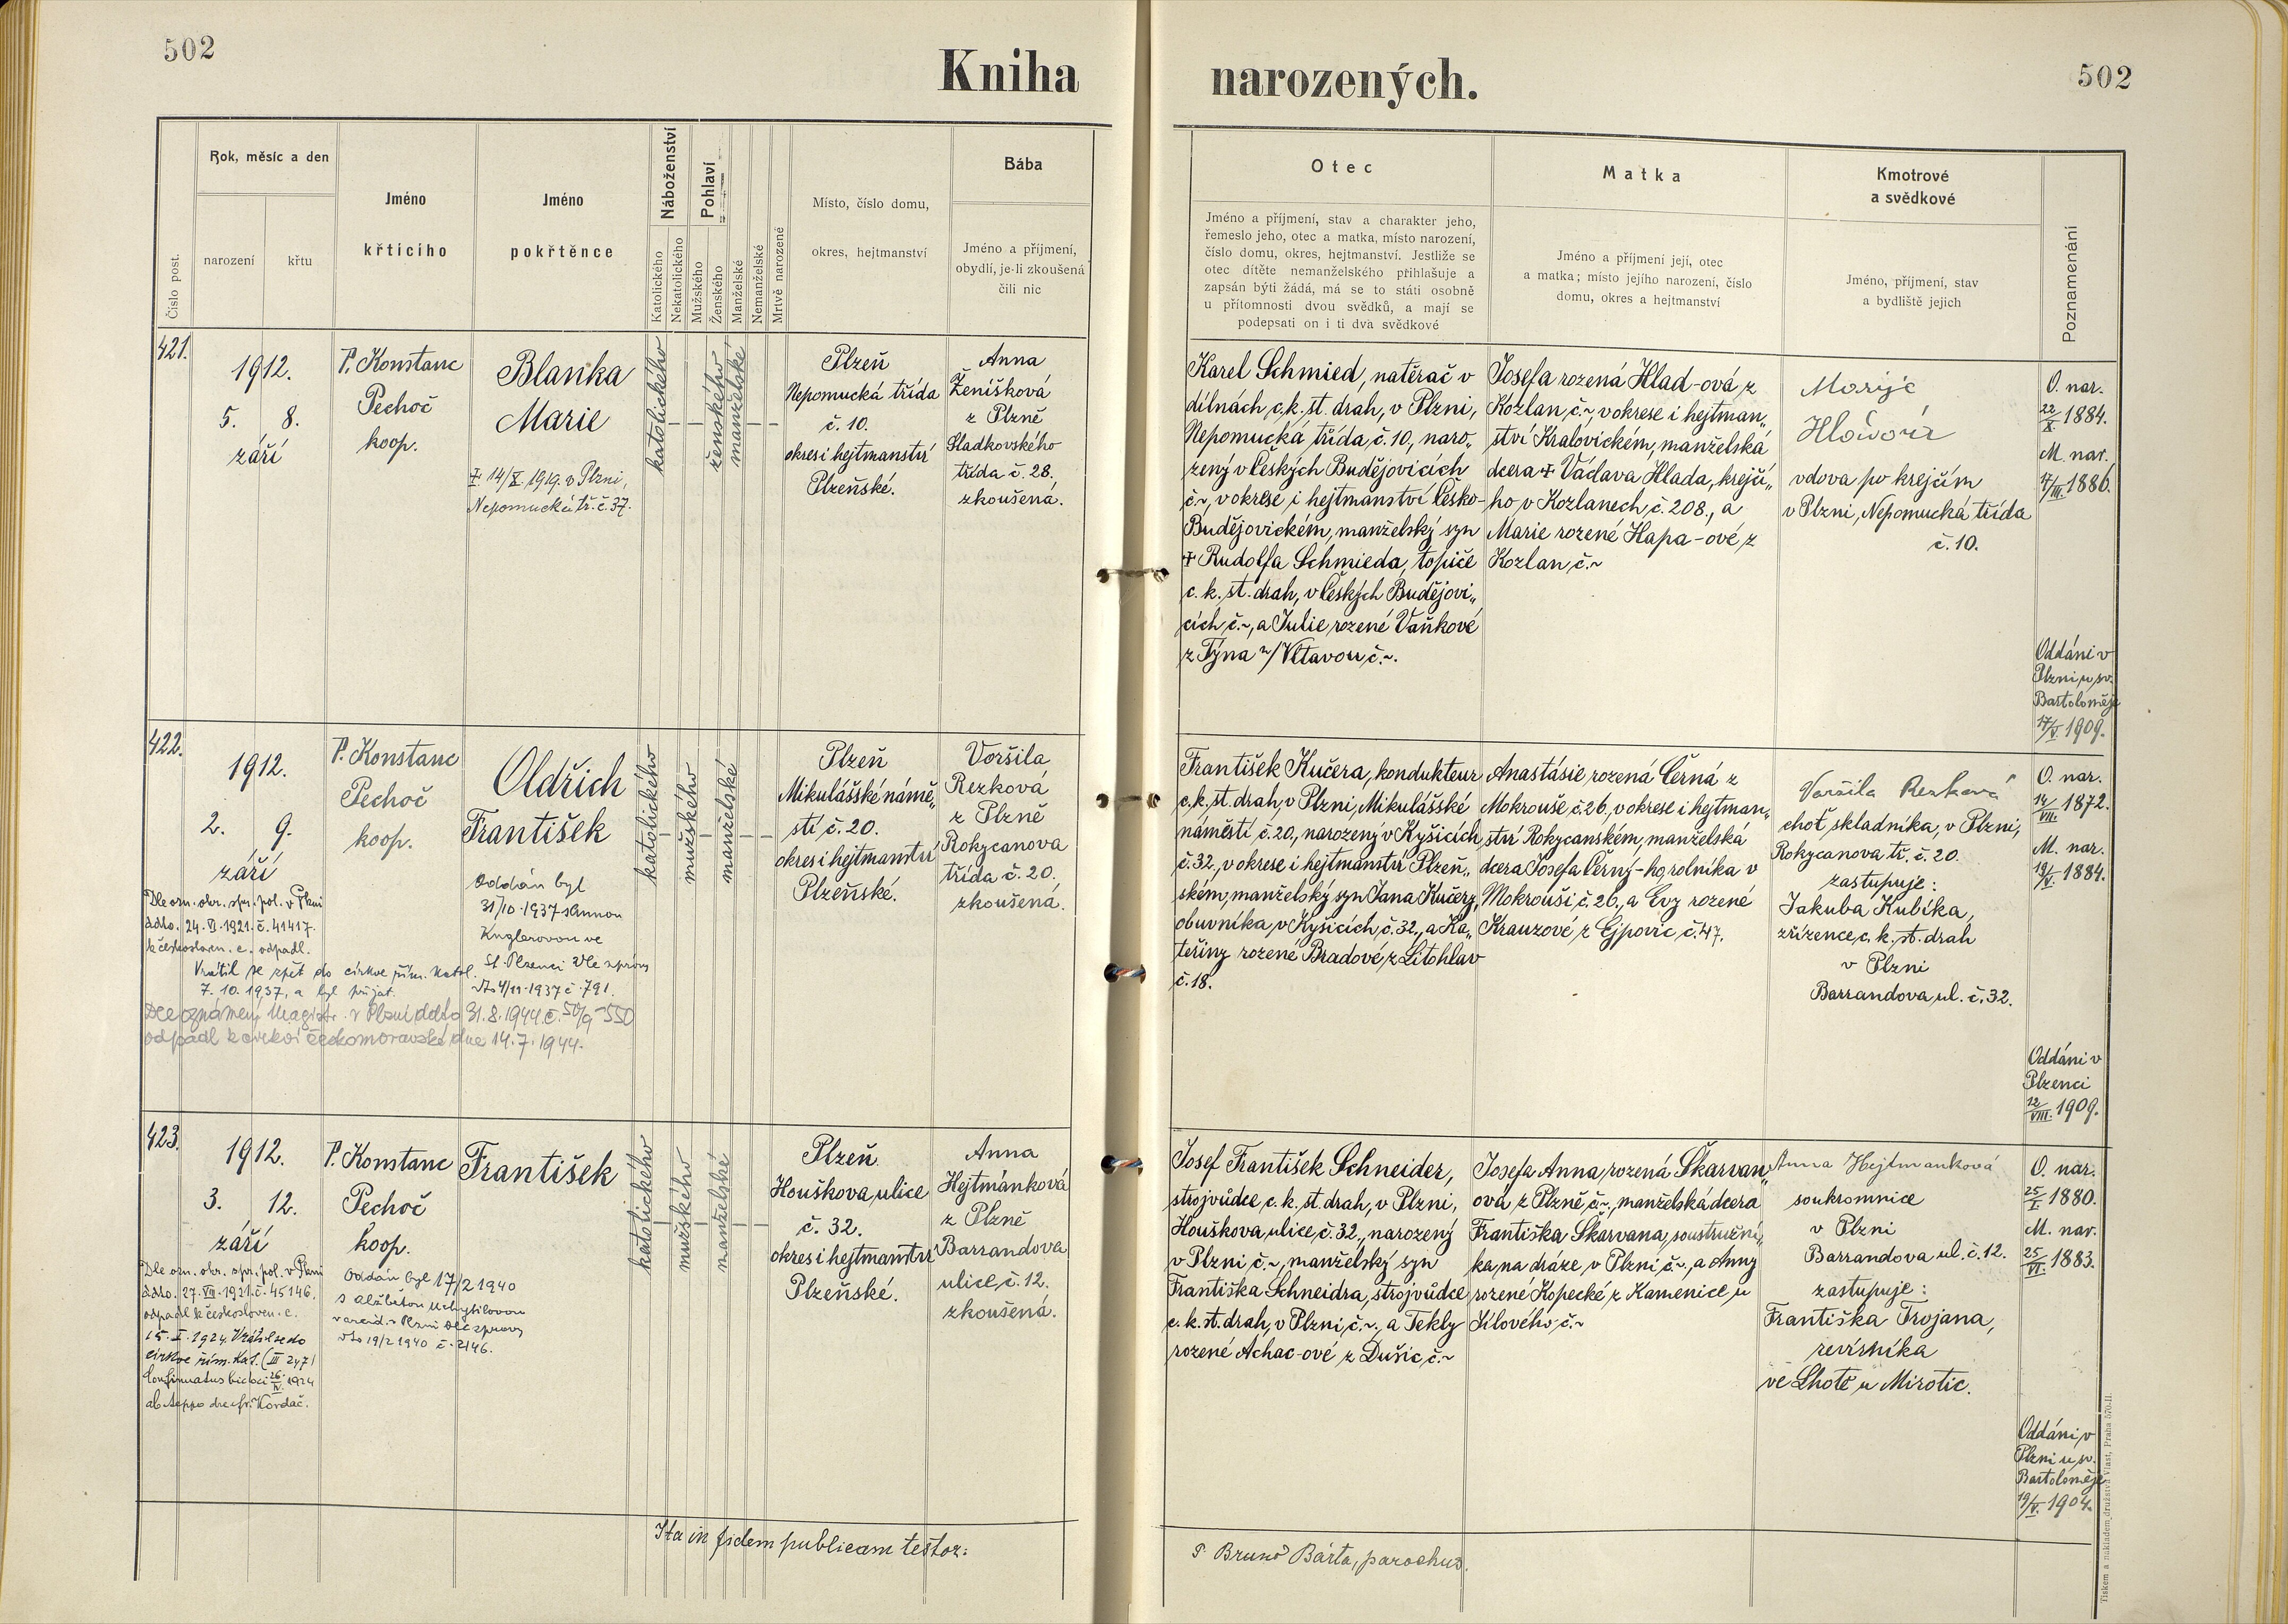 502
Kniha narozených.
502
Číslo post.
Rok, měsíc a den
narození
křtu
Jméno
křtícího
Jméno
pokřtěnce
Náboženství
Katolického
Nekatolického
Pohlaví
Mužského
Ženského
Manželské
Nemanželské
Mrtvě narozené
Místo, číslo domu,
okres, hejtmanství
Bába
Jméno a příjmení,
obydlí, je-li zkoušená
čili nic
Otec
Jméno a příjmení, stav a charakter jeho,
řemeslo jeho, otec a matka, místo narození,
číslo domu, okres, hejtmanství. Jestliže se
otec dítěte nemanželského přihlašuje a
zapsán býti žádá, má se to státi osobně
u přítomnosti dvou svědků, a mají se
podepsati on i ti dva svědkové
Matka
Jméno a příjmení její, otec
a matka; místo jejího narození, číslo
domu, okres a hejtmanství
Kmotrové
a svědkové
Jméno, příjmení, stav
a bydliště jejich
Poznamenání
421.
1912.
5. 8.
září
P. Konstanc
Pechoč
koop.
Blanka
Marie
‡ 14/X. 1919. v Plzni,
Nepomucká tř. č. 37.
katolického
ženského
manželské
Plzeň
Nepomucká třída
č. 10.
okres i hejtmanství
Plzeňské.
Anna
Ženíšková
z Plzně
Sladkovského
třída č. 28.
zkoušená.
Karel Schmied, natěrač v
dílnách c. k. st. drah, v Plzni,
Nepomucká třída č. 10, naro„
zený v Českých Budějovicích
č. ~, v okrese i hejtmanství Česko-
Budějovickém, manželský syn
‡ Rudolfa Schmieda, topiče
c. k. st. drah, v Českých Budějovi„
cích č. ~, a Julie rozené Vaňkové
z Týna n/Vltavou č. ~.
Josefa rozená Hlad-ová z
Kozlan č. ~, v okrese i hejtman„
ství Kralovickém, manželská
dcera ‡ Václava Hlada, krejčí„
ho v Kozlanech č. 208., a
Marie rozené Hapa-ové z
Kozlan č. ~
Marije
vdova po krejčím
v Plzni, Nepomucká třída
č. 10.
O. nar.
22/X. 1884.
M. nar.
17/III. 1886.
Oddáni v
Plzni u sv.
Bartoloměje
17/V. 1909.
422.
1912.
2. 9.
září
P. Konstanc
Pechoč
koop.
Oldřich
František
Oddán byl
31/10 1937 s Annou
Kuglerovou ve
St. Plzenci dle zprávy
dto 4/11 1937 č. 791.
Dle ozn. okr. spr. pol. v Plzni
ddto. 24. VI. 1921. č. 41417.
k českoslovn. c. odpadl.
Vrátil se zpět do církve řím. katol.
7. 10. 1937, a byl přijat.
Dle oznámení Magistr. v Plzni ddto 31. 8. 1944 č. 50/9-550
odpadl k církvi českomoravské dne 14. 7. 1944.
katolického
mužského
manželské
Plzeň
Mikulášské námě„
stí č. 20.
okres i hejtmanství
Plzeňské.
Voršila
Rezková
z Plzně
Rokycanova
třída č. 20.
zkoušená.
František Kučera, kondukteur
c. k. st. drah, v Plzni, Mikulášské
náměstí č. 20., narozený v Kyšicích
č. 32., v okrese i hejtmanství Plzeň„
ském, manželský syn Jana Kučery,
obuvníka, v Kyšicích č. 32., a Ka„
teřiny rozené Bradové z Litohlav
č. 18.
Anastásie rozená Černá z
Mokrouše č. 26, v okrese i hejtman„
ství Rokycanském, manželská
dcera Josefa Černý-ho, rolníka v
Mokrouši č. 26., a Evy rozené
Krauzové z Ejpovic č. 47.
Voršila Rezková
choť skladníka, v Plzni,
Rokycanova tř. č. 20.
zastupuje:
Jakuba Kubíka,
zřízence c. k. st. drah
v Plzni
Barrandova ul. č. 32.
O. nar.
14/VII. 1872.
M. nar.
19/V. 1884.
Oddáni v
Plzenci
12/VIII. 1909.
423.
1912.
3. 12.
září
P. Konstanc
Pechoč
koop.
František
Oddán byl 17/2 1940
s Alžbětou
v arcid. v Plzni dle zprávy
dto 19/2 1940 č. 2146.
Dle ozn. okr. spr. pol. v Plzni
ddto. 27. VII. 1921. č. 45146.
odpadl k českosloven. c.
15. X. 1924. Vrátil se do
církve řím. kat. (III 247)
26/IV. 1924
Kordač.
katolického
mužského
manželské
Plzeň
Houškova ulice
č. 32.
okres i hejtmanství
Plzeňské.
Anna
Hejtmánková
z Plzně
Barrandova
ulice č. 12.
zkoušená.
Josef František Schneider,
strojvůdce c. k. st. drah, v Plzni,
Houškova ulice č. 32., narozený
v Plzni č. ~, manželský syn
Františka Schneidra, strojvůdce
c. k. st. drah, v Plzni č. ~, a Tekly
rozené Achac-ové z Dušic č. ~
Josefa Anna, rozená Škarvan„
ová z Plzně č. ~, manželská dcera
Františka Škarvana, soustružní„
ka na dráze v Plzni č. ~, a Anny
rozené Kopecké z Kamenice u
Jílového č. ~
Anna Hejtmanková
soukromnice
v Plzni
Barrandova ul. č. 12.
zastupuje:
Františka Trojana,
revírníka
ve Lhotě u Mirotic.
O. nar.
25/I. 1880.
M. nar.
25/VI. 1883.
Oddáni v
Plzni u sv.
Bartoloměje
19/V. 1904.
Ita in fidem publicam testor:
P. Bruno Bárta, parochus.
Tiskem a nákladem družstva Vlast, Praha 570-II.